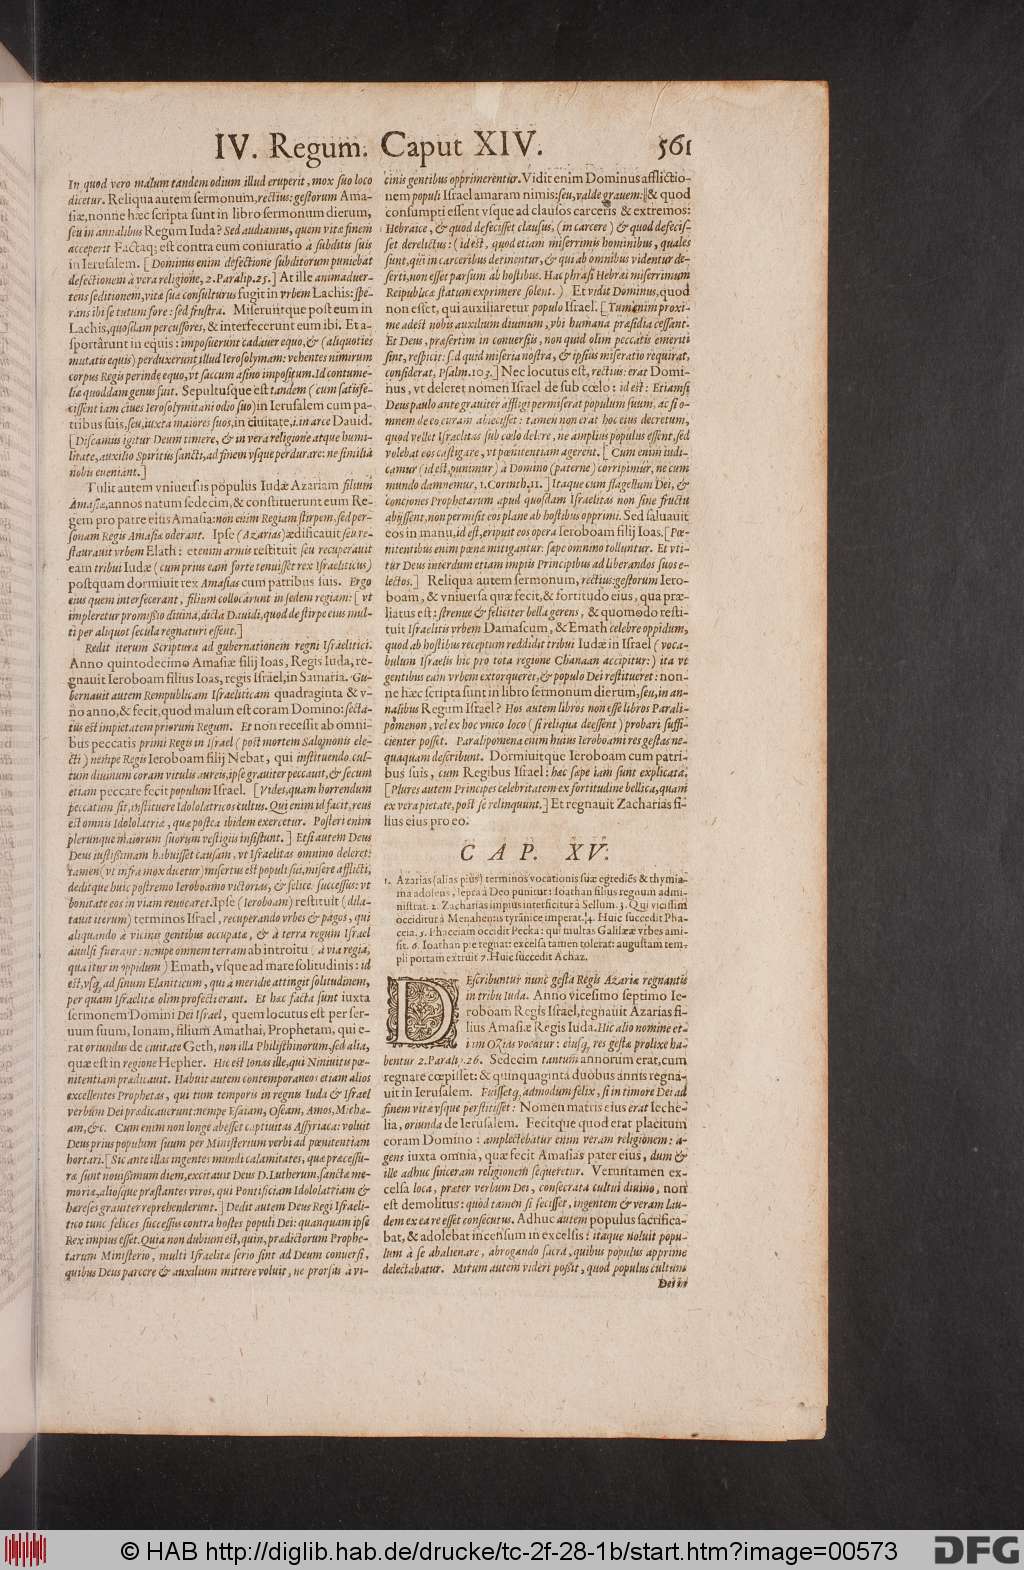 IV. Regum. Caput XIV. 561
In quod vero malum tandem odium illud eruperit, mox suo loco
dicetur. Reliqua autem sermonum, rectius: gestorum Ama-
siæ, nonne hæc scripta sunt in libro sermonum dierum,
seu in annalibus Regum Iuda? Sed audiamus, quem vitæ finem
acceperit Factaq; est contra eum coniuratio à subditis suis
in Ierusalem. [Dominus enim defectione subditorum puniebat
defectionem à vera religione, 2. Paralip. 25.] At ille animaduer-
tens seditionem, vitæ suæ consulturus fugit in vrbem Lachis: spe-
rans ibi se tutum fore: sed frustra. Miseruntque post eum in
Lachis, quosdam percussores, & interfecerunt eum ibi. Et a-
sportârunt in equis: imposuerunt cadauer equo, & (aliquoties
mutatis equis) perduxerunt illud Ierosolymam: vehentes nimirum
corpus Regis perinde equo, vt saccum asino impositum. Id contume-
liæ quoddam genus fuit. Sepultusque est tandem (cum satisfe-
cissent iam ciues Ierosolymitani odio suo) in Ierusalem cum pa-
tribus suis, seu, iuxta maiores suos, in ciuitate, i. in arce Dauid.
[Discamus igitur Deum timere, & in vera religione atque humi-
litate, auxilio Spiritus sancti, ad finem vsque perdurare: ne similia
nobis eueniant.]
Tulit autem vniuersus populus Iudæ Azariam filium
Amasiæ, annos natum sedecim, & constituerunt eum Re-
gem pro patre eius Amasia: non enim Regiam stirpem, sed per-
sonam Regis Amasiæ oderant. Ipse (Azarias) ædificauit seu re-
staurauit vrbem Elath: etenim armis restituit seu recuperauit
eam tribui Iudæ (cum prius eam forte tenuisset rex Israeliticus)
postquam dormiuit rex Amasias cum patribus suis. Ergo
eius quem interfecerant, filium collocârunt in sedem regiam: [vt
impleretur promissio diuina, dicta Dauidi, quod de stirpe eius mul-
ti per aliquot secula regnaturi essent.]
Redit iterum Scriptura ad gubernationem regni Israelitici.
Anno quintodecimo Amasiæ filij Ioas, Regis Iuda, re-
gnauit Ieroboam filius Ioas, regis Israel, in Samaria. Gu-
bernauit autem Rempublicam Israeliticam quadraginta & v-
no anno, & fecit, quod malum est coram Domino: secta-
tus est impietatem priorum Regum. Et non recessit ab omni-
bus peccatis primi Regis in Israel (post mortem Salomonis ele-
cti) nempe Regis Ieroboam filij Nebat, qui instituendo cul-
tum diuinum coram vitulis aureis, ipse grauiter peccauit, & secum
etiam peccare fecit populum Israel. [Vides, quam horrendum
peccatum sit, instituere Idololatricos cultus. Qui enim id facit, reus
est omnis Idololatriæ, quæ postea ibidem exercetur. Posteri enim
plerunque maiorum suorum vestigiis insistunt.] Etsi autem Deus
Deus iustissimam habuisset causam, vt Israelitas omnino deleret:
tamen (vt infra mox dicetur) misertus est populi sui, misere afflicti,
deditque huic postremo Ieroboamo victorias, & felice. successus: vt
bonitate eos in viam reuocaret. Ipse (Ieroboam) restituit (dila-
tauit iterum) terminos Israel, recuperando vrbes & pagos, qui
aliquando à vicinis gentibus occupatæ, & à terra regum Israel
auulsi fuerant: nempe omnem terram ab introitu (à via regia,
qua itur in oppidum) Emath, vsque ad mare solitudinis: id
est, vsq; ad sinum Elaniticum, qui à meridie attingit solitudinem,
per quam Israelitæ olim profecti erant. Et hæc facta sunt iuxta
sermonem Domini Dei Israel, quem locutus est per ser-
uum suum, Ionam, filium Amathai, Prophetam, qui e-
rat oriundus de ciuitate Geth, non illa Philisthinorum, sed alia,
quæ est in regione Hepher. Hic est Ionas ille, qui Niniuitis pœ-
nitentiam prædicauit. Habuit autem contemporaneos etiam alios
excellentes Prophetas, qui tum temporis in regnis Iuda & Israel
verbum Dei prædicauerunt: nempe Esaiam, Oseam, Amos, Michæ-
am, &c. Cum enim non longe abesset captiuitas Assyriaca: voluit
Deus prius populum suum per Ministerium verbi ad pœnitentiam
hortari. [Sic ante illas ingentes mundi calamitates, quæ præcessu-
ræ sunt nouissimum diem, excitauit Deus D. Lutherum, sanctæ me-
moriæ, aliosque præstantes viros, qui Pontificiam Idololatriam &
hæreses grauiter reprehenderunt.] Dedit autem Deus Regi Israeli-
tico tunc felices successus contra hostes populi Dei: quanquam ipse
Rex impius esset. Quia non dubium est, quin, prædictorum Prophe-
tarum Ministerio, multi Israelitæ serio sint ad Deum conuersi,
quibus Deus parcere & auxilium mittere voluit, ne prorsus à vi-
cinis gentibus opprimerentur. Vidit enim Dominus afflictio-
nem populi Israel amaram nimis: seu, valde grauem: & quod
consumpti essent vsque ad clausos carceris & extremos:
Hebraice, & quod defecisset clausus, (in carcere) & quod defecis-
set derelictus: (id est, quod etiam miserrimis hominibus, quales
sunt, qui in carceribus detinentur, & qui ab omnibus videntur de-
serti, non esset parsum ab hostibus. Hac phrasi Hebræi miserrimum
Reipublicæ statum exprimere solent.) Et vidit Dominus, quod
non esset, qui auxiliaretur populo Israel. [Tum enim proxi-
me adest nobis auxilium diuinum, vbi humana præsidia cessant.
Et Deus, præsertim in conuersis, non quid olim peccatis emeriti
sint, respicit: s.d quid miseria nostra, & ipsius miseratio requirat,
considerat, Psalm. 103.] Nec locutus est, rectius: erat Domi-
nus, vt deleret nomen Israel de sub cœlo: id est: Etiamsi
Deus paulo ante grauiter affligi permiserat populum suum, ac si o-
mnem de eo curam abiecisset: tamen non erat hoc eius decretum,
quod vellet Israelitas sub cœlo delere, ne amplius populus essent, sed
volebat eos castigare, vt pœnitentiam agerent. [Cum enim iudi-
camur (id est, punimur) à Domino (paterne) corripimur, ne cum
mundo damnemur, 1. Corinth. 11.] Itaque cum flagellum Dei, &
conciones Prophetarum apud quosdam Israelitas non sine fructu
abijssent, non permisit eos plane ab hostibus opprimi. Sed saluauit
eos in manu, id est, eripuit eos opera Ieroboam filij Ioas. [Pœ-
nitentibus enim pœnæ mitigantur: sæpe omnino tolluntur. Et vti-
tur Deus interdum etiam impiis Principibus ad liberandos suos e-
lectos.] Reliqua autem sermonum, rectius: gestorum Iero-
boam, & vniuersa quæ fecit, & fortitudo eius, qua præ-
liatus est: strenue & feliciter bella gerens, & quomodo resti-
tuit Israelitis vrbem Damascum, & Emath celebre oppidum,
quod ab hostibus receptum reddidit tribui Iudæ in Israel (voca-
bulum Israelis hic pro tota regione Chanaan accipitur:) ita vt
gentibus eam vrbem extorqueret, & populo Dei restitueret: non-
ne hæc scripta sunt in libro sermonum dierum, seu, in an-
nalibus Regum Israel? Hos autem libros non esse libros Parali-
pomenon, vel ex hoc vnico loco (si reliqua deessent) probari suffi-
cienter posset. Paralipomena enim huius Ieroboami res gestas ne-
quaquam describunt. Dormiuitque Ieroboam cum patri-
bus suis, cum Regibus Israel: hæc sæpe iam sunt explicata.
[Plures autem Principes celebritatem ex fortitudine bellica, quam
ex vera pietate, post se relinquunt.] Et regnauit Zacharias fi-
lius eius pro eo.
CAP. XV.
1. Azarias (alias pius) terminos vocationis suæ egrediēs & thymia-
ma adolens, lepra à Deo punitur: Ioathan filius regnum admi-
nistrat. 2. Zacharias impius interficitur à Sellum. 3. Qui vicissim
occiditur à Menahemus tyrānice imperat. 4. Huic succedit Pha-
ceia. 5. Phaceiam occidit Pecka: qui multas Galilææ vrbes ami-
sit. 6. Ioathan pie regnat: excelsa tamen tolerat: augustam tem-
pli portam extruit 7. Huic succedit Achaz.
DEscribuntur nunc gesta Regis Azariæ regnantis
in tribu Iuda. Anno vicesimo septimo Ie-
roboam Regis Israel, regnauit Azarias fi-
lius Amasiæ Regis Iuda. Hic alio nomine et-
iam Ozias vocatur: eiusq; res gestæ prolixe ha-
bentur 2. Paralip. 26. Sedecim tantum annorum erat, cum
regnare cœpisset: & quinquaginta duobus annis regna-
uit in Ierusalem. Fuissetq; admodum felix, si in timore Dei ad
finem vitæ vsque perstitisset: Nomen matris eius erat Ieche-
lia, oriunda de Ierusalem. Fecitque quod erat placitum
coram Domino: amplectebatur enim veram religionem: a-
gens iuxta omnia, quæ fecit Amasias pater eius, dum &
ille adhuc sinceram religionem sequeretur. Veruntamen ex-
celsa loca, præter verbum Dei, consecrata cultui diuino, non
est demolitus: quod tamen si fecisset, ingentem & veram lau-
dem ex ea re esset consecutus. Adhuc autem populus sacrifica-
bat, & adolebat incensum in excelsis: itaque noluit popu-
lum à se abalienare, abrogando sacra, quibus populus apprime
delectabatur. Mirum autem videri possit, quod populus cultum
Dei in
© HAB http://diglib.hab.de/drucke/tc-2f-28-1b/start.htm?image=00573
DFG